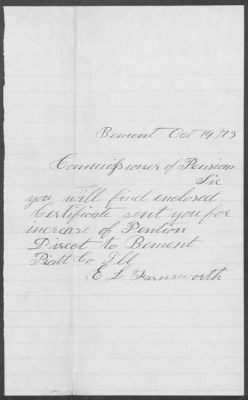 Bement Oct 14/73
Commissioner of Pensions
Sir
you will find enclosed
Certificate sent you for
increase of Pention
Direct to Bement
Piatt Co Ill
E L Farnsworth